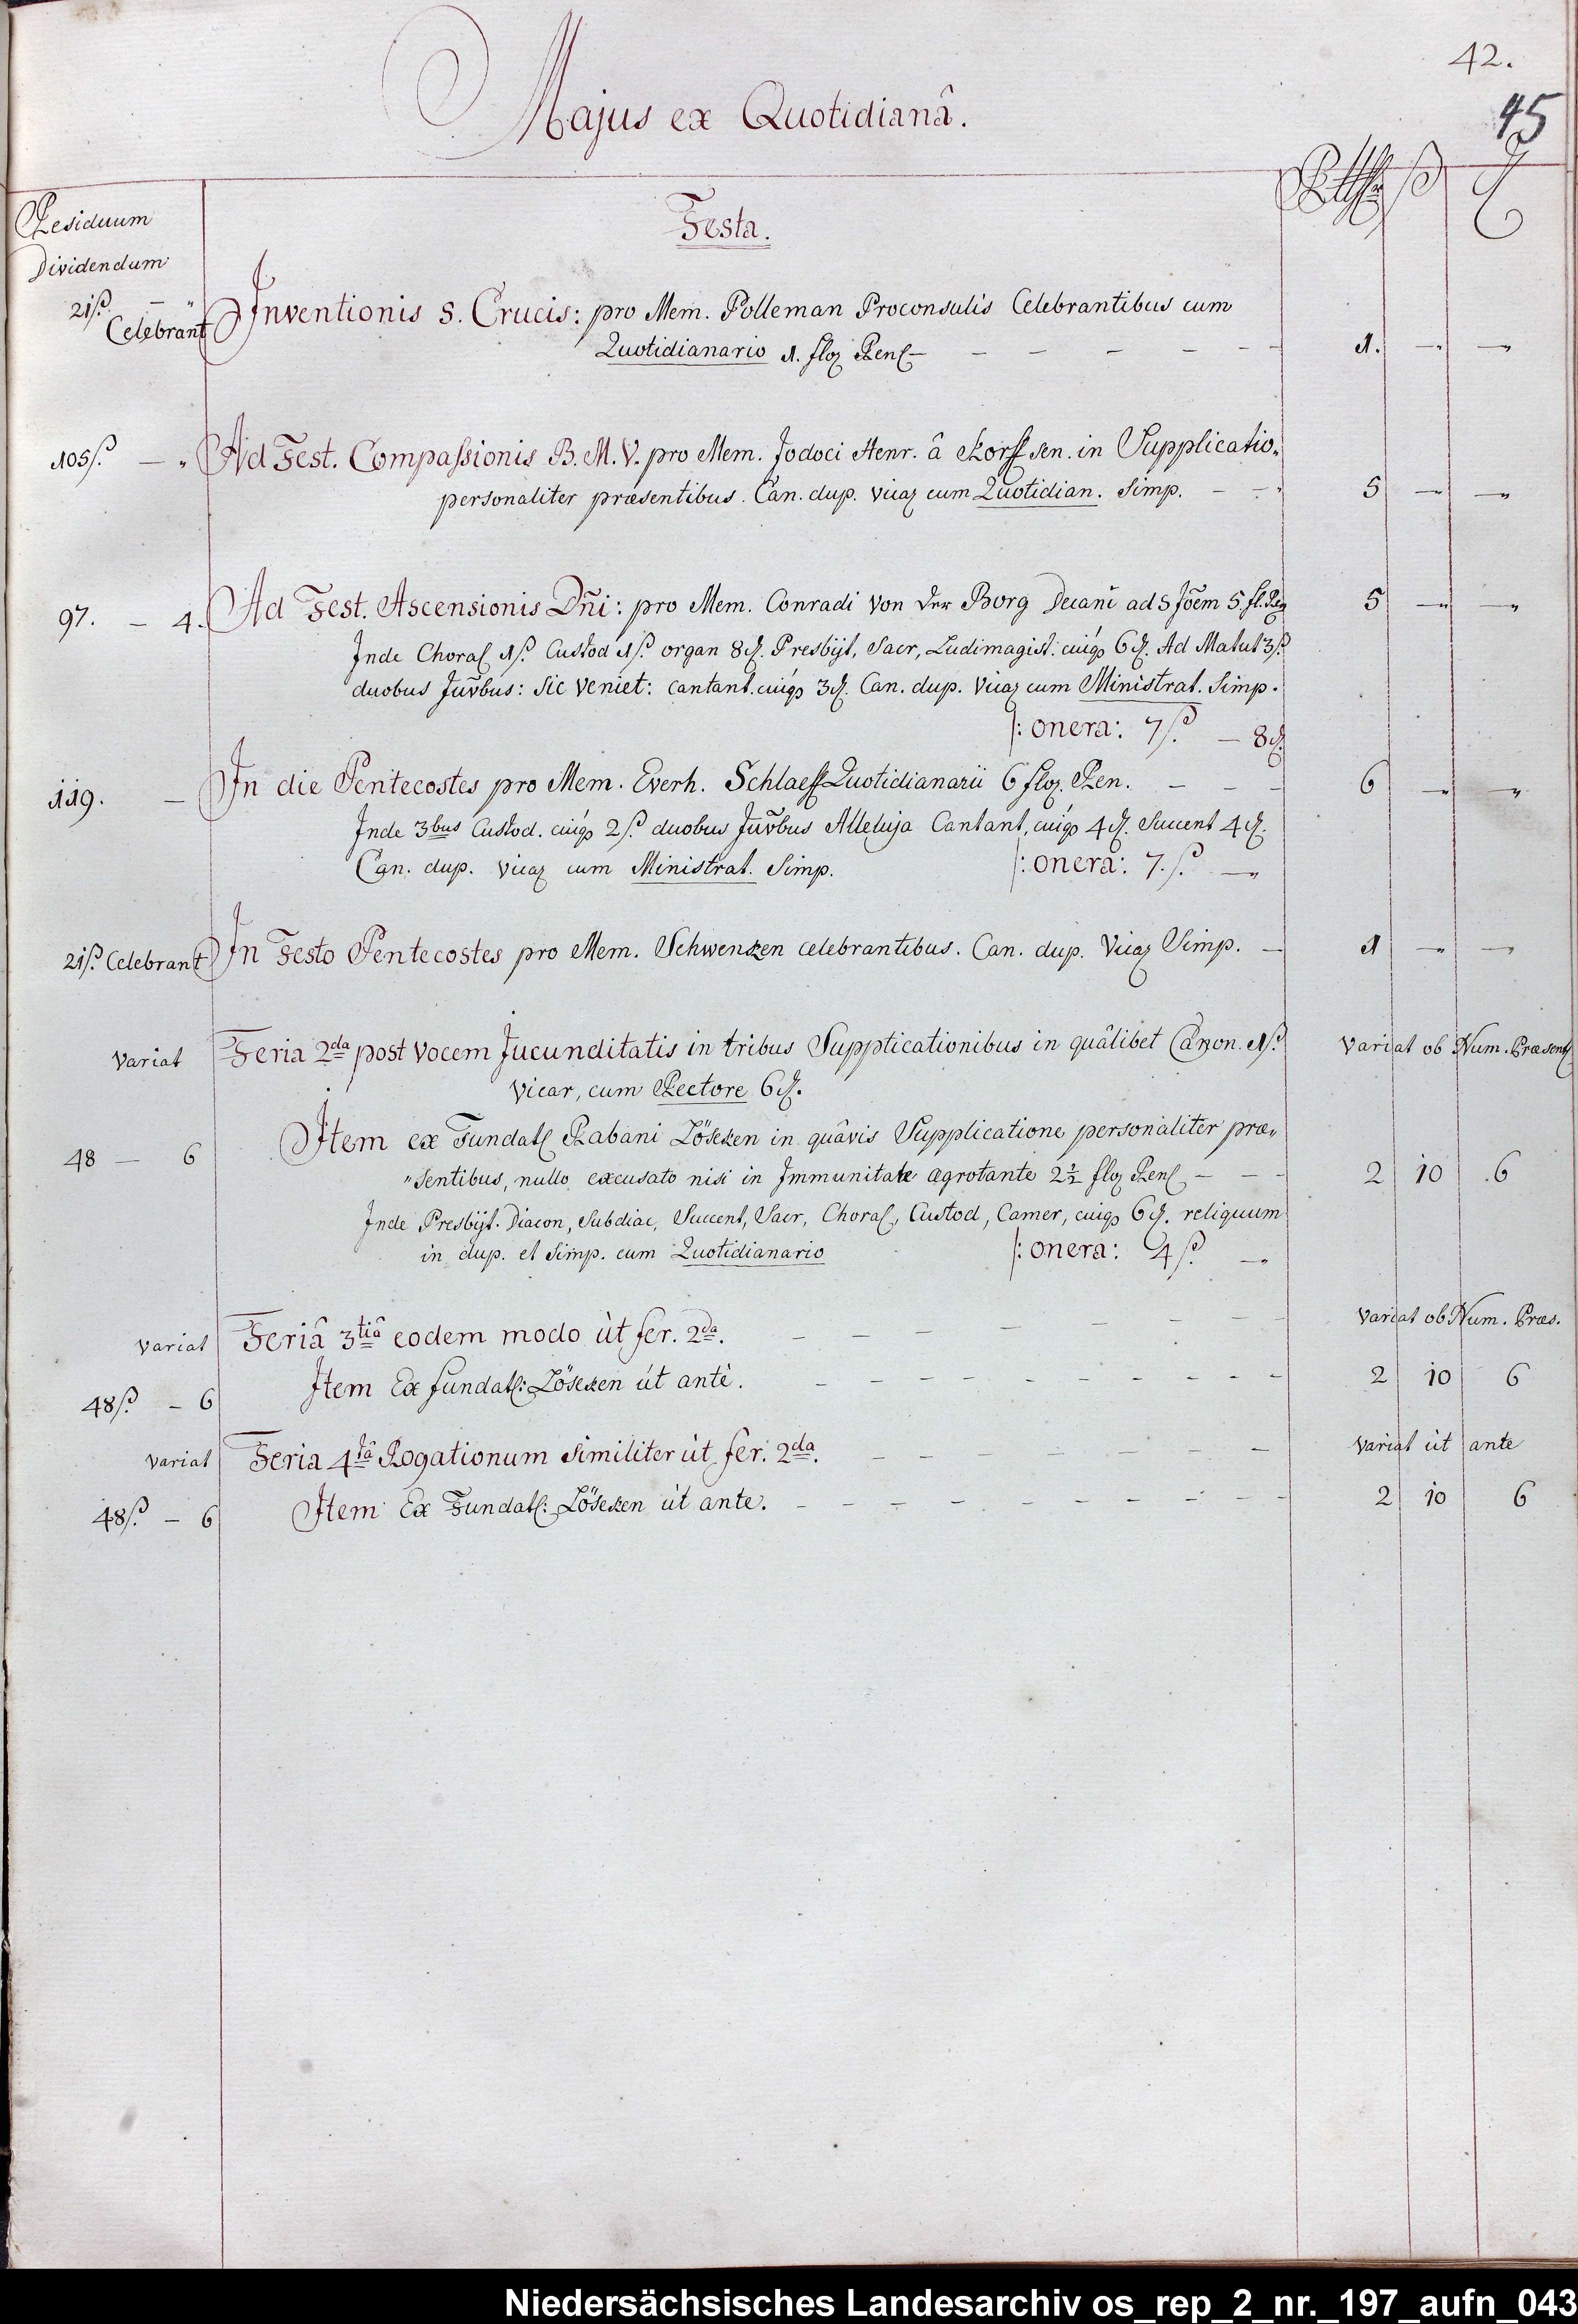 42.
45
Majus ex Quotidianâ.
Residuum
Dividendum
Festa.
Rthlr ß ₰
21ß. — „
Celebrant
Inventionis S. Crucis: pro Mem. Polleman Proconsulis Celebrantibus cum
Quotidianario 1. flor Ren — — — — — — 1. — —
105ß. — „ Ad Fest. Compassionis B. M. V. pro Mem. Jodoci Henr. â Korff sen. in Supplicatio„
personaliter præsentibus. Can. dup. vicar cum Quotidian. Simp. — — 5 — —
97. — 4. Ad Fest. Ascensionis Dñi: pro Mem. Conradi von der Borg Decani ad S Jõem 5 fl. Ren 5 — —
Inde Choral 1ß. Custod 1ß. organ 8₰. Presbijt, Sacr, Ludimagist. cuiq 6₰. Ad Matut 3ß.
duobus Juvbus: Sic veniet: cantant. cuiq 3₰. Can. dup. Vicar cum Ministrat. Simp.
|: onera: 7ß. — 8₰.
119. — In die Pentecostes pro Mem. Everh. Schlaeff Quotidianarii 6 flor. Ren. — — — 6 — —
Inde 3bus Custod. cuiq 2ß. duobus Juvbus Alleluja Cantant, cuiq 4₰. Succent 4₰.
Can. dup. vicar cum Ministrat. Simp. |: onera: 7.ß. —
21ß. Celebrant In Festo Pentecostes pro Mem. Schwenken celebrantibus. Can. dup. Vicar Simp. — 1 — —
Variat Feria 2da post vocem Jucunditatis in tribus Suppticationibus in quâlibet Canon. 1ß. Variat ob Num. Præsent
Vicar, cum Rectore 6₰.
48 — 6 Item ex Fundat Rabani Löseken in quâvis Supplicatione personaliter præ„
„sentibus, nullo excusato nisi in Immunitate ægrotante 2½ flor Ren — — — 2 10 6
Inde Presbijt. Diacon, Subdiac, Succent, Sacr, Choral, Custod, Camer, cuiq 6₰. reliquum
in dup. et Simp. cum Quotidianario |: onera: 4ß. —
Variat Feriâ 3tiâ eodem modo ùt fer. 2da. — — — — — — — — — Variat ob Num. Præs.
48ß. — 6 Item Ex fundat: Löseken út antè. — — — — — — — — — — 2 10 6
Variat Feria 4tâ Rogationum similiter ùt fer. 2da. — — — — — — — Variat ùt ante
48ß. — 6 Item Ex Fundat: Löseken út ante. — — — — — — — — — — 2 10 6
Niedersächsisches Landesarchiv os_rep_2_nr._197_aufn_043